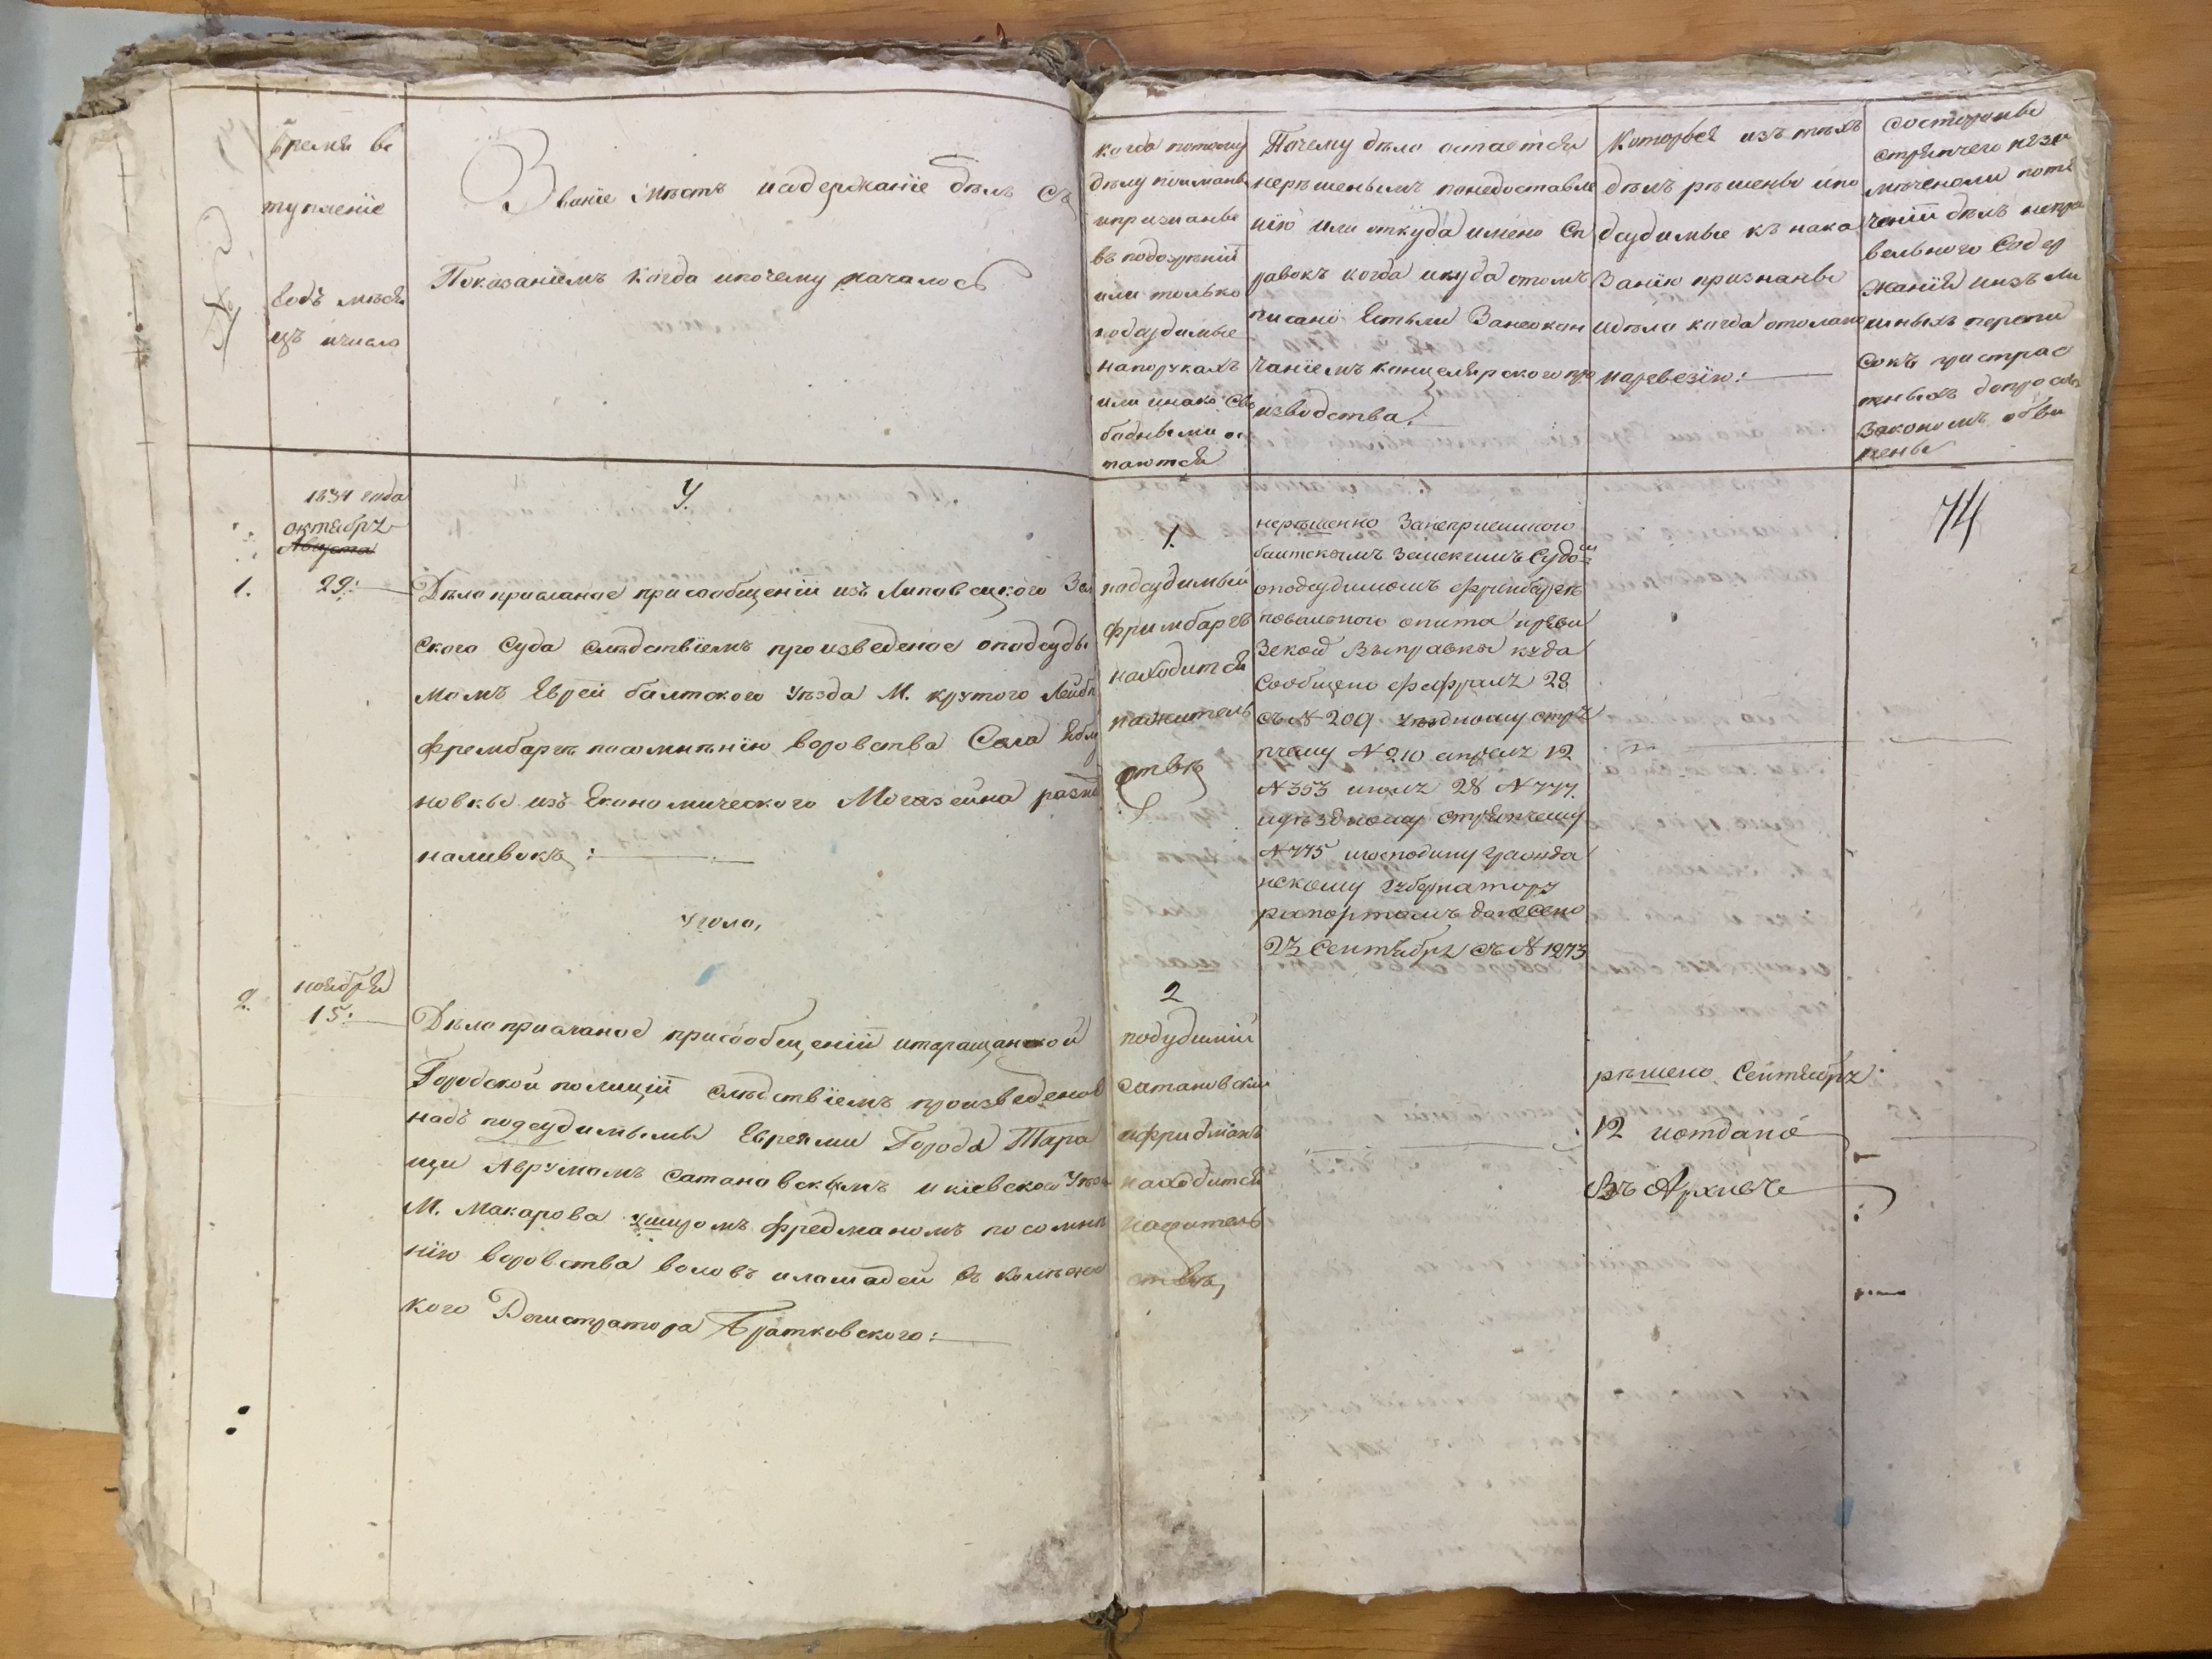 №
Время вс
тупленіе
водъ мѣся
цъ ичисло
Званіе мѣстъ исодержаніе дѣлъ съ
Показаніемъ когда ипочему началось
когда потому
дѣлу поиманы
ипризнаны
въ подозрѣніи
или только
подсудимые
напорукахъ
или инако сво
бодными ос
таются
Почему дѣло остается
нерѣшенымъ понедоставле
нію или откуда имено Сп
равокъ когда икуда отомъ
писано Естьли Занеокон
чаніемъ канцелярского про
изводства.
Которые изъ тѣхъ
дѣлъ рѣшены ипо
дсудимые къ нака
Занію признаны
идѣло когда отослано
наревезію:
Состороны
стряпчего незя
мѣчено ли поте
ченіи дѣлъ непра
вельного Содер
жанія иизъ ли
шныхъ перепи
Сокъ пристрас
тныхъ допросовъ
Закономъ обви
нены
74
1834 года
октября
Августа
1.
29:
У.
Дѣло присланое присообщеніи изъ Липовецкого Зем
ского Суда слѣдствіемъ произведеное оподсуди
момъ Еврей балтского уѣзда М. крутого Лейбѣ
фрембергъ посомненію воровства Села
новкы изъ Економического Могазейна разны
наливокъ:
1.
подсудимый
фримбаргъ
находится
нажитель
ствѣ
нерѣшенно Занеприсишкого
балтскымъ Земскимъ Судо
оподсудимомъ фримбергѣ
повального опита иреви
Зской Выправки куда
Сообщено февраля 28
съ № 209 уѣздному стря
пчему № 210 апреля 12
№ 353 июля 28 № 777.
иуѣздному стряпчему
№ 775 игосподину гражда
нскому Губернатору
рапортомъ донесено
23 Сентября съ № 1273
Уголо,
2.
ноября
15:
Дѣло присланое присообщеніи итаращанской
Городской полиціи слѣдствіемъ произведеное
надъ подсудимымы Евреями Города Тара
щи Аврумомъ Сатановскымъ икіевского Уѣзда
М. Макарова фредманомъ посомне
нію воровства воловъ илошадей въ колѣжс
кого Регистратора Братковского:
2
подудимии
сатановскии
ифридманъ
находится
нажитель
ствѣ,
рѣшено Сентября
12 иотдано
Въ Архивъ